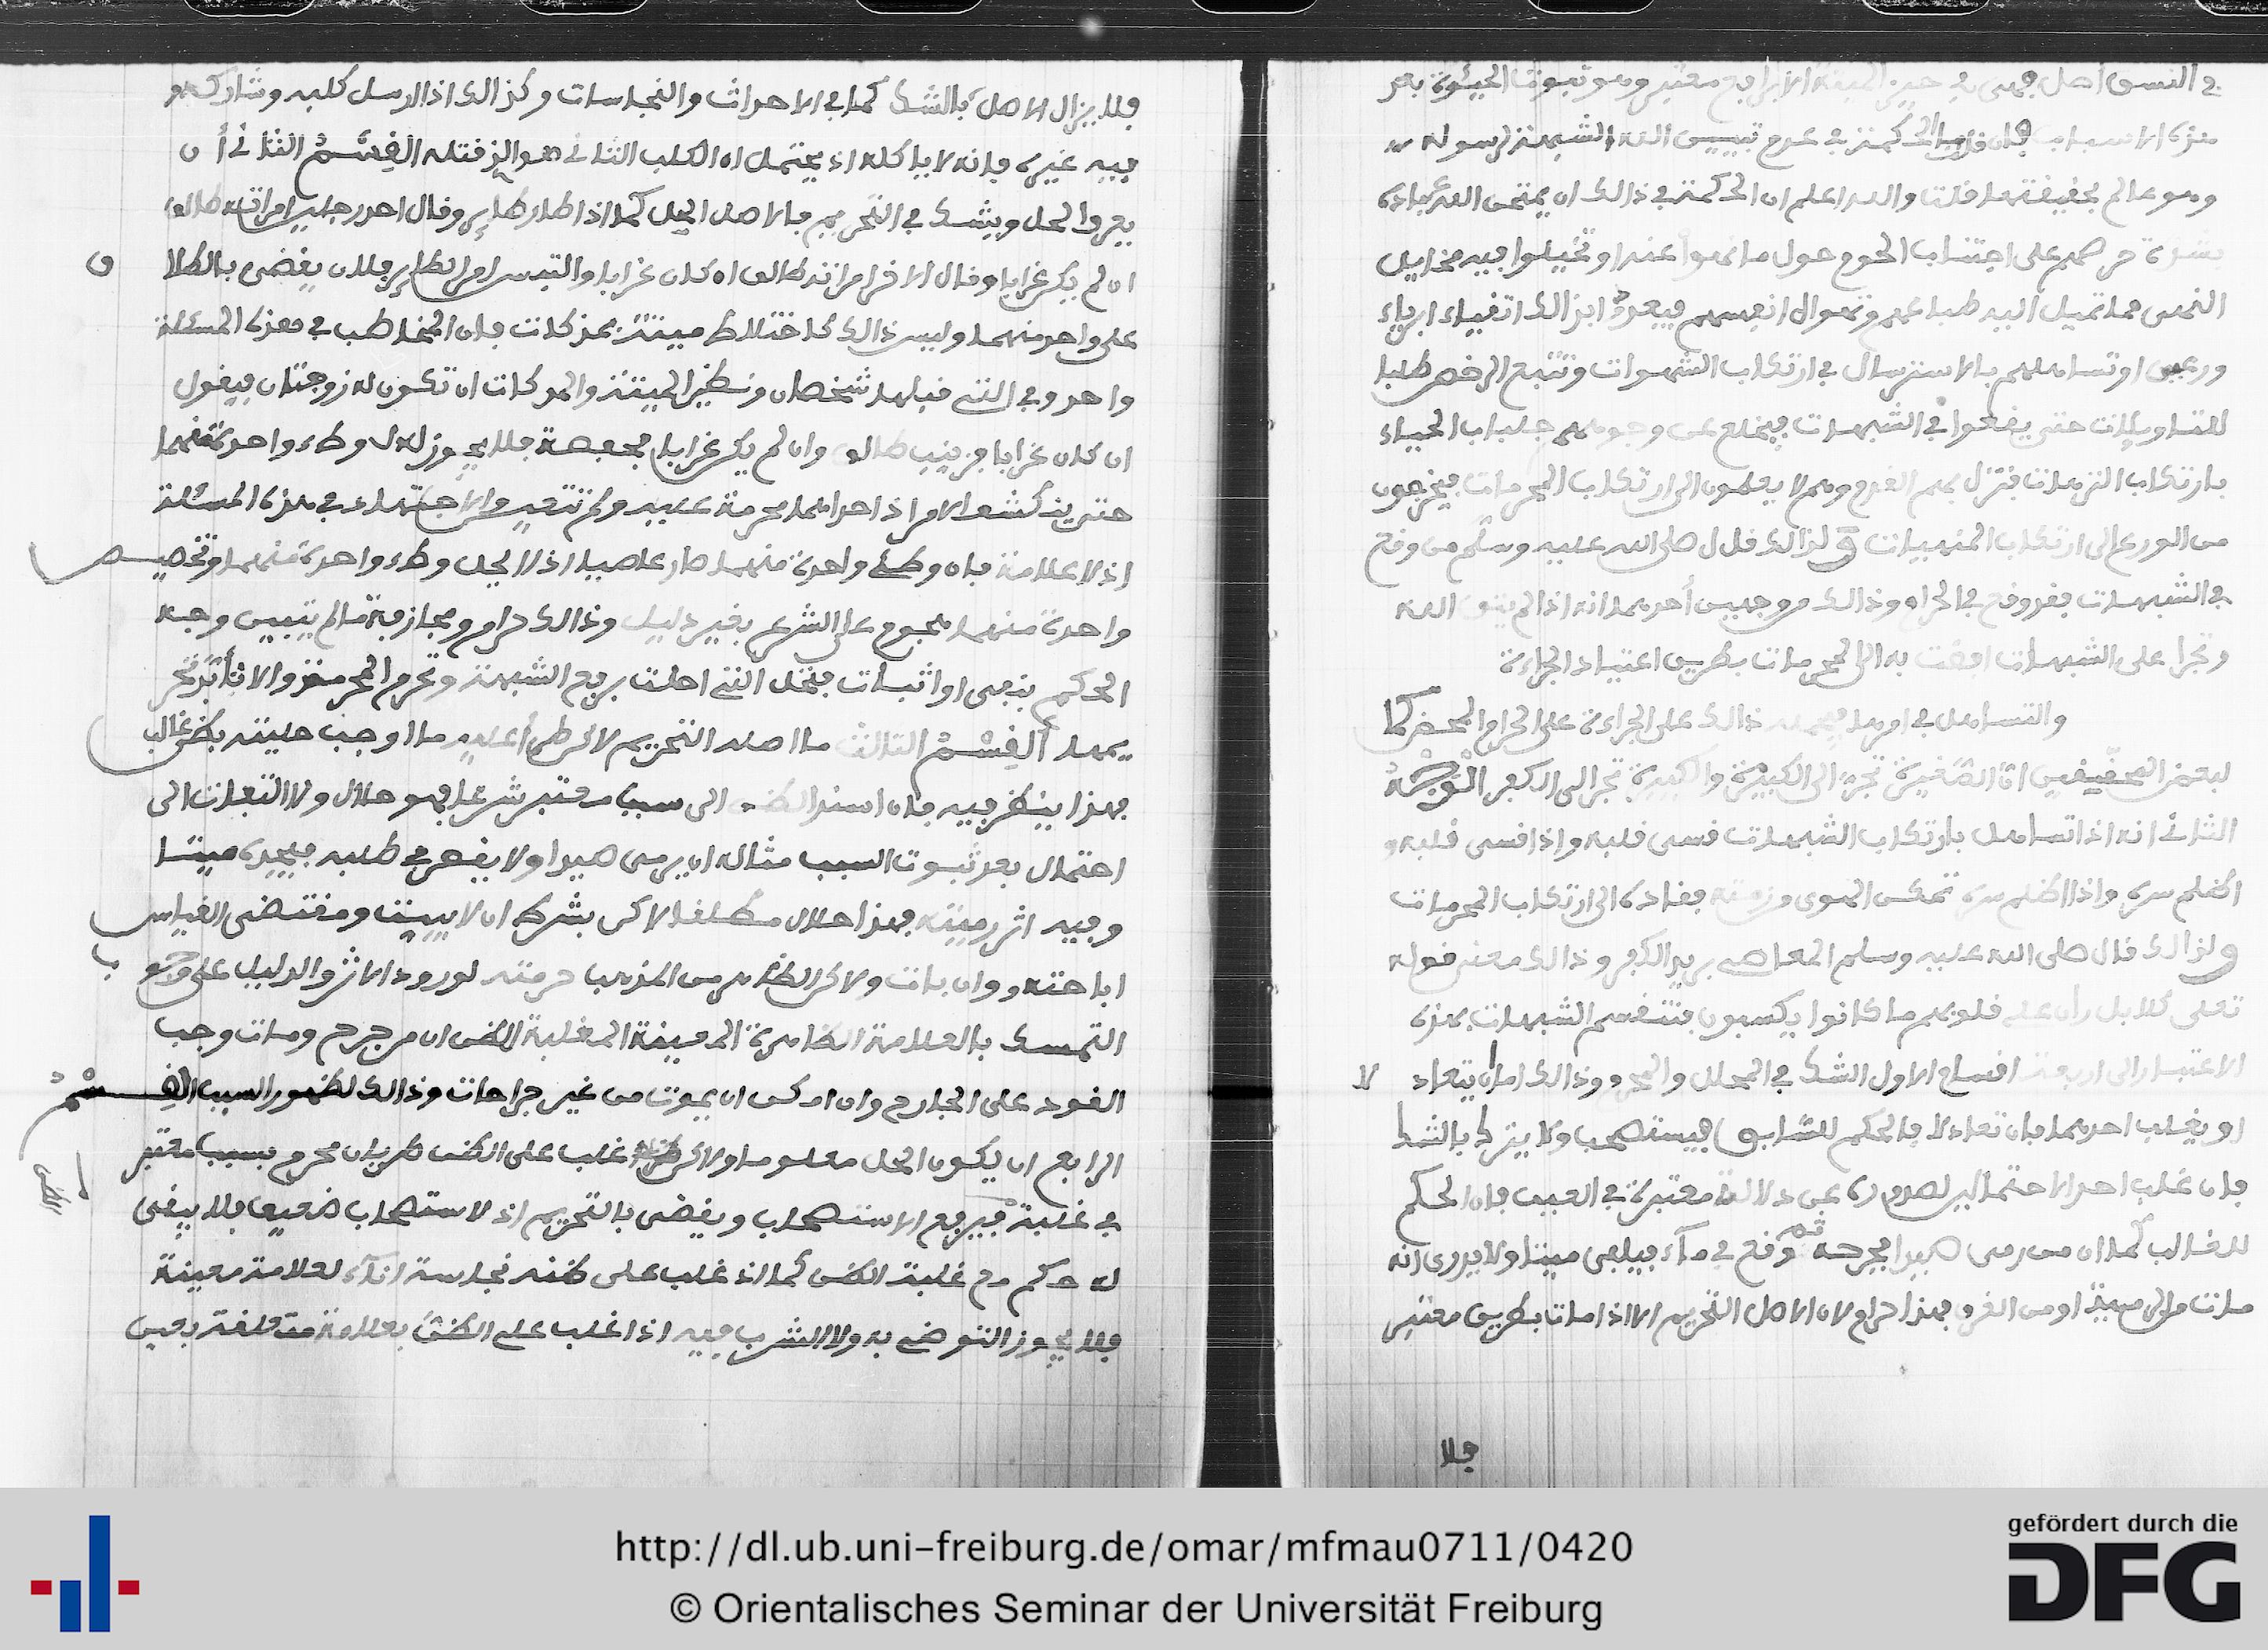 في النسق اصل فهى في حيز الميتة الا برافع معتبر وهو ثبوت الحيئوة بعد
هذه الاسباب فان قلت ما الحكمة في عدم تبيين الله الشبهة لرسوله
وهو عالم بحقيقتها قلت والله اعلم ان الحكمة في ذالك ان يمتحن الله عباده
بشدة حرصهم على اجتناب الحوم حول ما نهوا عنه او تخيلوا فيه مخايل
النهى مما تميل اليه طباعهم وتهوال انفسهم فيعدوا بذالك اتقياء ابرياء
ورعين او تساهلهم بالاسترسال في ارتكاب الشهوات وتتبع الرخص طلبا
للتاويلات حتى يقعوا في الشبهات فينخلع عن وجوههم جلباب الحياء
بارتكاب الترهات فتزل بهم القدم وهم لا يعلمون الى ارتكاب المحرمات فيخرجون
من الورع الى ارتكاب المنهيات ولذالك قال صلى الله عليه وسلم من وقع
في الشبهات فقد وقع في الحرام وذالك من وجهين أحدهما انه اذا لم يتق الله
وتجرا على الشبهات افضت به الى المحرمات بطريق اعتياد الجراءة
والتساهل في امرها فيحمله ذالك على الجراءة على الحرام المحض كما
لبعض المحققين ان الصغيرة تجر الى الكبيرة والكبيرة تجر الى الكفر الوجه
الثانى انه اذا تساهل بارتكاب الشبهات قسى قلبه واذا قسى قلبه و
اظلم سره واذا اظلم سره تمكن الهوى من زمته فقاده الى ارتكاب المحرمات
ولذالك قال صلى الله عليه وسلم المعاصى بريد الكفر وذالك معنى قوله
تعلى كلا بل رأن على قلوبهم ما كانوا يكسبون فتنقسم الشبهات بهذه
الاعتبار الى اربعة اقسام الاول الشك في المحلل والمحرم وذالك اما ان يتعاد لا
او يغلب احدهما فان تعادلا فالحكم للسابق فيستصحب ولا يترك بالشك
فان غلب احد الاحتمالين لصدوره عن دلالة معتبرة في الغيب فان الحكم
للغالب كما ان من رمى صيدا فجرحه ثم وقع في ماء فيلفى ميتا ولا يدرى انه
مات من الرمية او من الغرق فهذا حرام لان الاصل التحريم الا اذا مات بطريق معتبر
فلا
فلا يزال الاصل بالشك كما في الاحداث والنجاسات وكذالك اذا ارسل كلبه وشاركه
فيه غيره فانه لا ياكله اذ يحتمل ان الكلب الثانى هو الذى قتله القسم الثانى أن
يعرف الحل ويشك في التحريم فالاصل الحل كما اذا طار طاير وقال احد رجلين امراته طالق
ان لم يكن غرابا وقال الاخر امراته طالق ان كان غرابا والتبس امر الطاير فلا يقضى بالطلا ق
على واحد منهما وليس ذالك كاختلاط ميتة بمذكات فان المخاطب في هذه المسئلة
واحد وفي التى قبلها شخصان ونظير الميتة والمذكات ان تكون له زوجتان فيقول
ان كان غرابا فزينب طالق وان لم يكن غرابا فحفصة فلا يجوز له ان وطء واحدة منهما
حتى ينكشف الامر اذ احداهما محرمة عليه ولم تتعين والاجتهاد في هذه المسئلة
اذ لا علامة فان وطئ واحدة منهما صار عاصيا اذ لا يحل وطء واحدة منهما وتخصيص
واحدة منهما هجوم على الشرع بغير دليل وذالك حرام ومجازفة مالم يتبين وجه
الحكم بنفى او اثبات فتحل التى احلت برفع الشبهة وتحرم المحرمة والا تأبد تحر
يمها القسم الثالث ما اصله التحريم لاكن طرأ عليه ما اوجب حليته بظن غالب
فهذا ينظر فيه فان استند الظن الى سبب معتبر شرعا فهو حلال ولا التفات الى
احتمال بعد ثبوت السبب مثاله ان يرمى صيدا ولا يقصر في طلبه فيجده ميتا
وفيه اثر رميته فهذا حلال مطلقا لاكن بشرط ان لا يبيت ومقتضى القياس
اباحته وان بات ولاكن الظاهر من المذهب حرمته لورود الاثر والدليل على وجوب
التمسك بالعلامة الظاهرة المعينة المغلبة للظن ان من جرح ومات وجب
القود على الجارح وان امكن ان يموت من غير جراحات وذالك لظهور السبب القسم
الرابع ان يكون الحل معلوما ولاكن غلب على الظن طريان محرم بسبب معتبر
في غلبة الظن فيرفع الاستصحاب ويقضى بالتحريم اذ لاستصحاب ضعيف فلا يبقى
له حكم مع غلبة الظن كما اذا غلب على ظنه نجاسة اناء لعلامة معينة
فلا يجوز التوضى به ولا الشرب فيه اذا غلب على الظن بعلامة متعلقة بعين
http://dl.ub.uni-freiburg.de/omar/mfmau0711/0420
© Orientalisches Seminar der Universität Freiburg
gefördert durch die
DFG